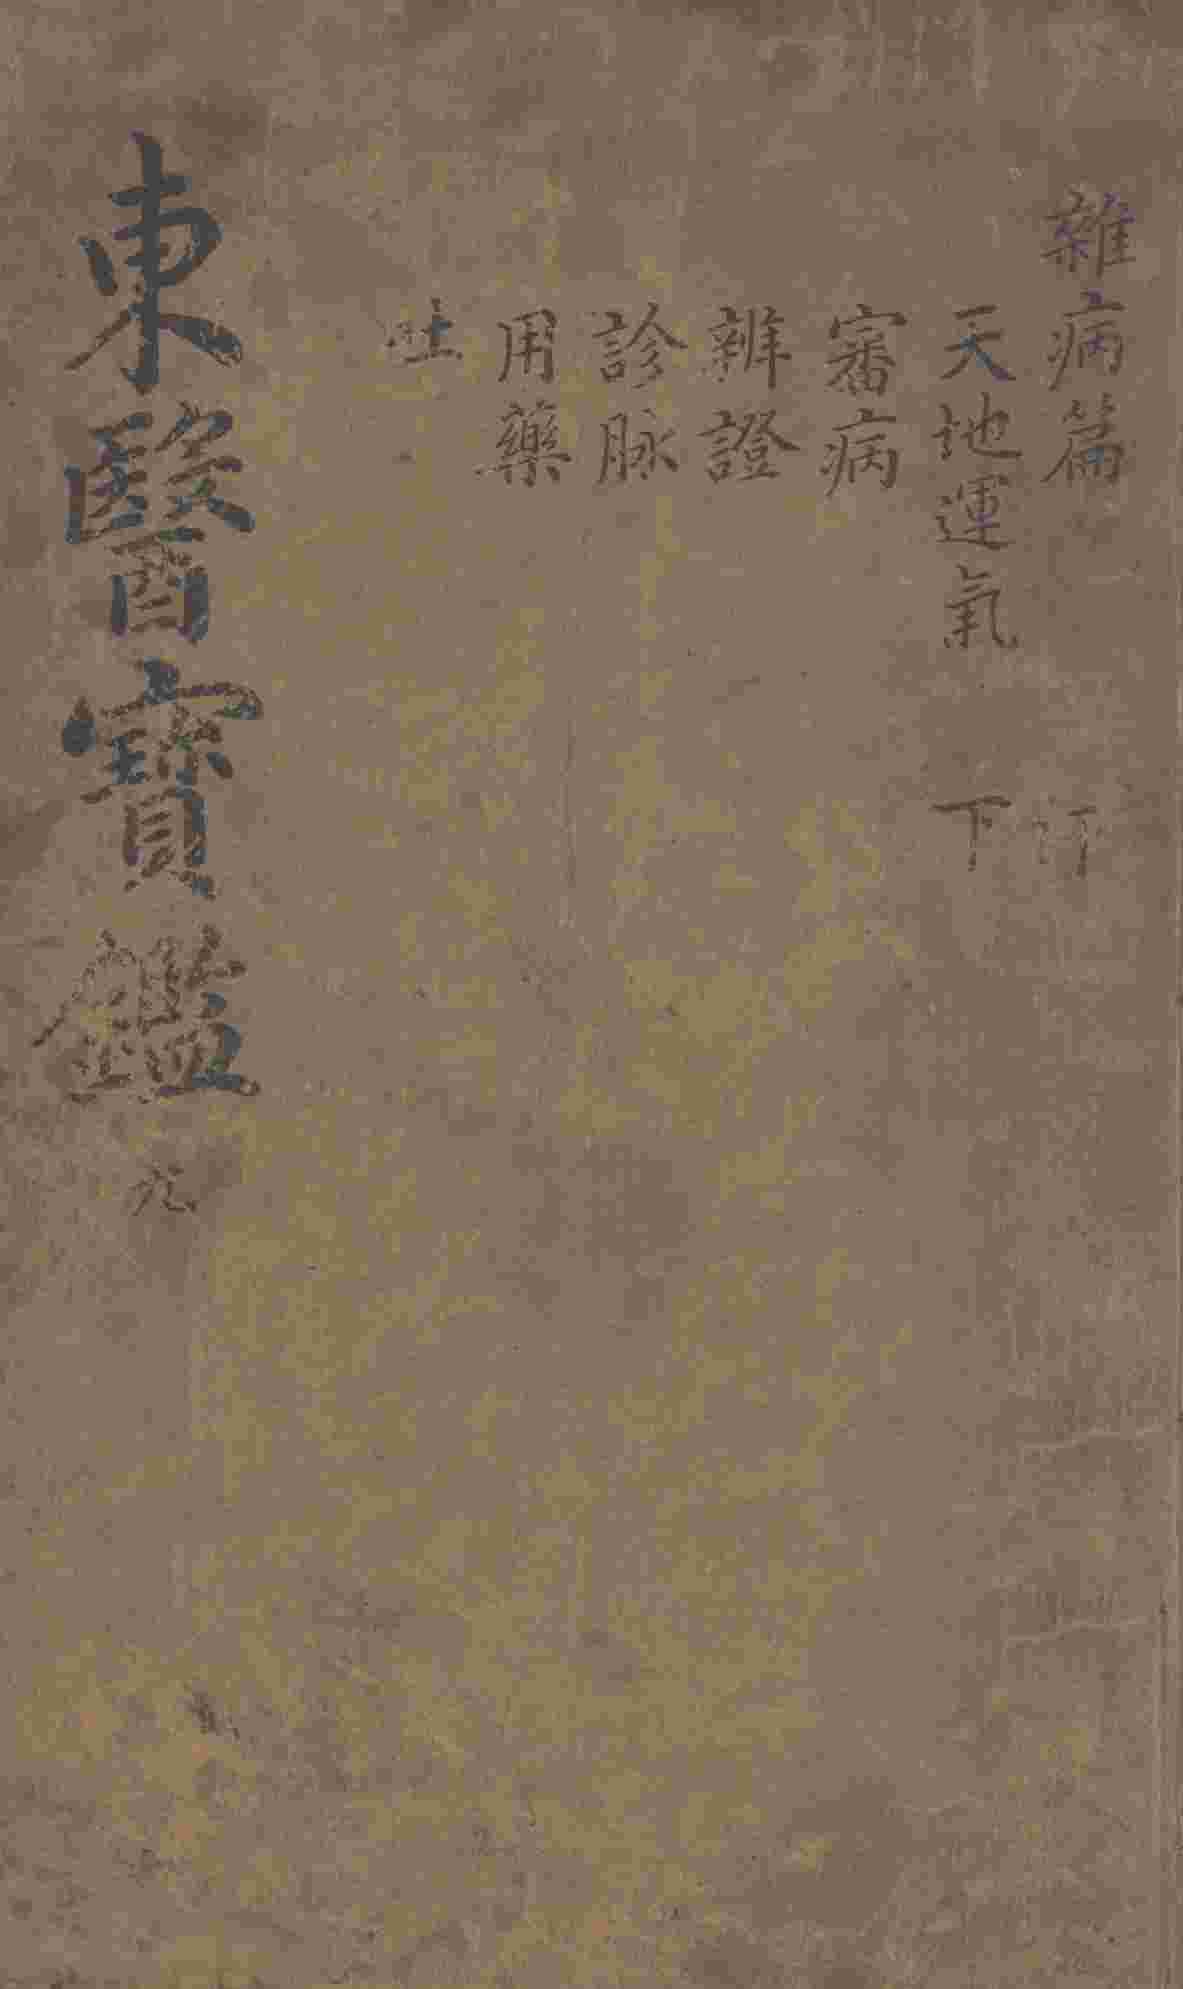 雜病篇
汗
天地運氣
下
審病
辨證
診脉
用藥
吐
東醫寶鑑